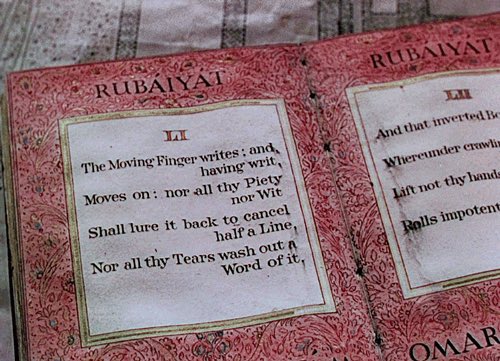 RUBÁIYAT
LI
The Moving Finger writes; and,
having writ,
Moves on: nor all thy Piety
nor Wit
Shall lure it back to cancel
half a Line,
Nor all thy Tears wash out a
Word of it.
RUBÁIYAT
LII
And that inverted
Whereunder
Lift not thy hands
Rolls
OMAR